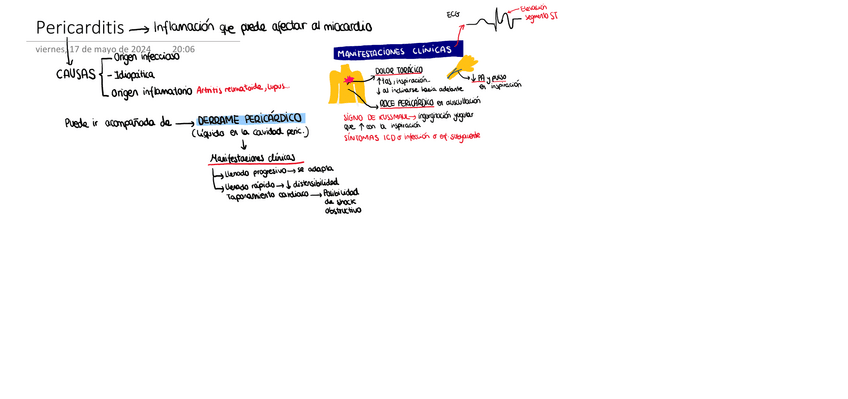 Pericarditis → Inflamación que puede afectar al miocardio
viernes, 17 de mayo de 2024 20:06
CAUSAS
- Origen infeccioso
- Idiopática
- Origen inflamatorio Artritis reumatoide, lupus...
Puede ir acompañada de → DERRAME PERICÁRDICO
(Líquido en la cavidad peric.)
↓
Manifestaciones clínicas
→ Llenado progresivo → se adapta
→ Llenado rápido → ↓ distensibilidad
Taponamiento cardiaco → Posibilidad
de shock
obstructivo
ECG
Elevación
segmento ST
MANIFESTACIONES CLÍNICAS
DOLOR TORÁCICO
↑ tos, inspiración
↓ al inclinarse hacia adelante
ROCE PERICÁRDICO en auscultación
↓ PA y pulso
en inspiración
SIGNO DE KUSSMAUL → ingurgitación yugular
que ↑ con la inspiración
SÍNTOMAS ICD o infección o enf. subyacente